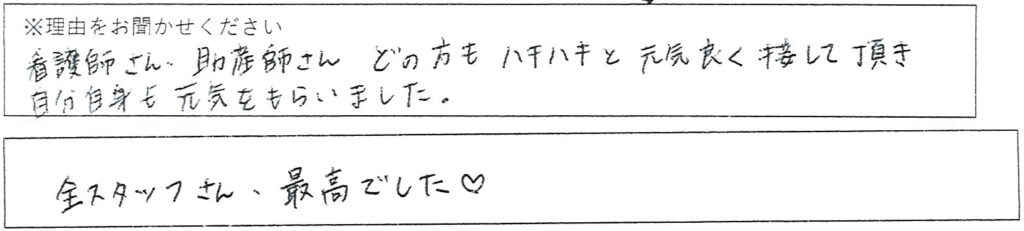 ※理由をお聞かせください
看護師さん、助産師さん どの方も ハキハキと 元気良く 接して頂き
自分自身も 元気をもらいました。
全スタッフさん、最高でした♡